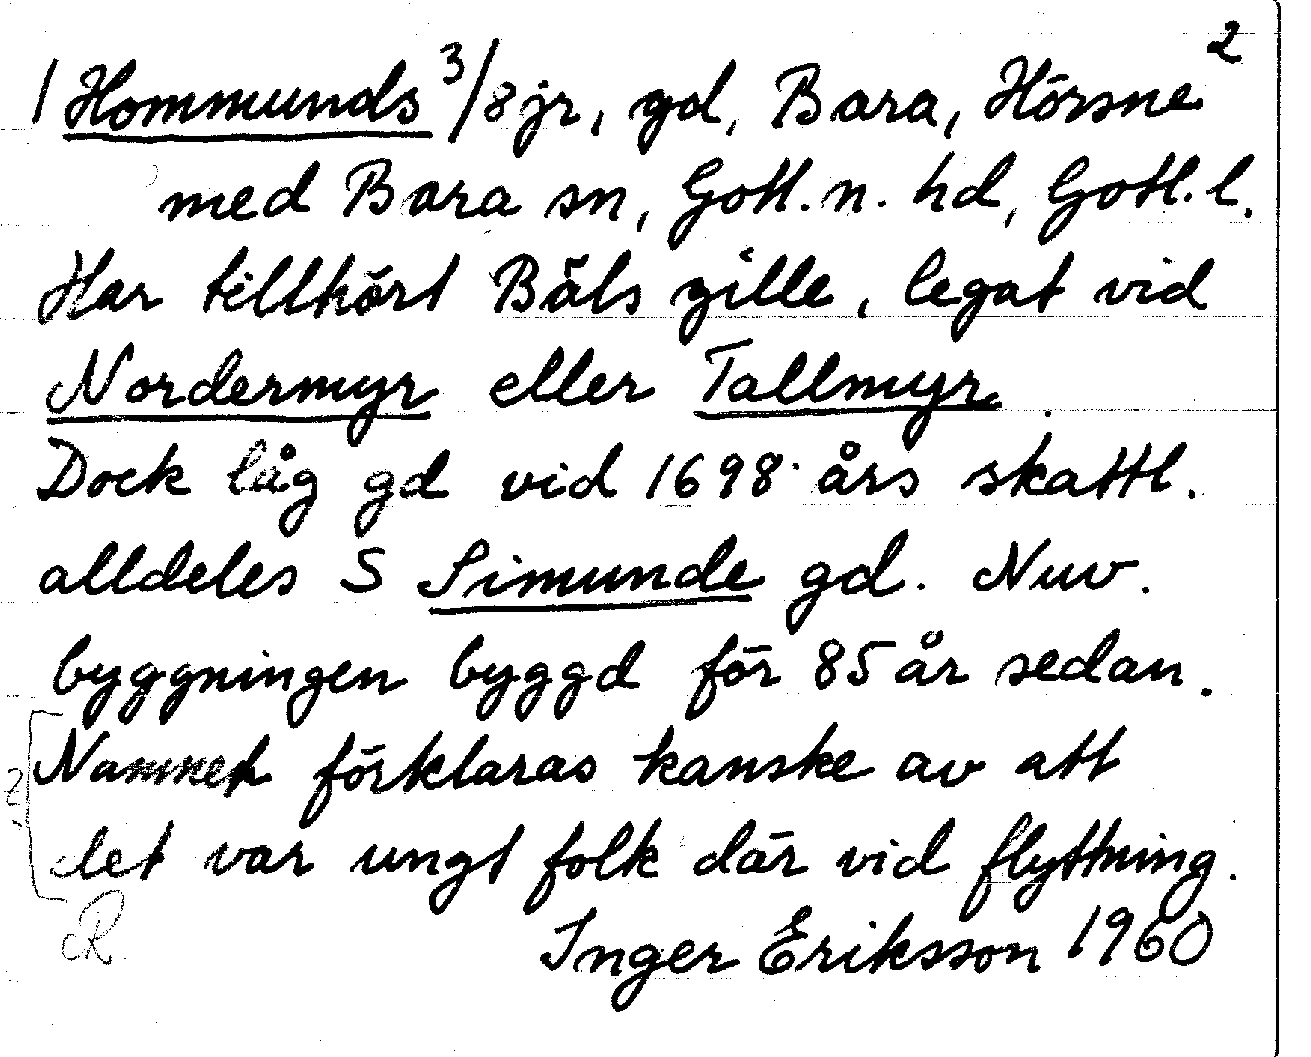 2
1 Hommunds 3/8 jr, gd, Bara, Hörsne
med Bara sn, Gotl. n. hd, Gotl. l.
Har tillhört Bäls gille, legat vid
Nordermyr eller Tallmyr.
Dock låg gd vid 1698 års skattl.
alldeles S Simunde gd. Nuv.
byggningen byggd för 85 år sedan.
Namnet förklaras kanske av att
det var ungt folk där vid flyttning.
Inger Eriksson 1960